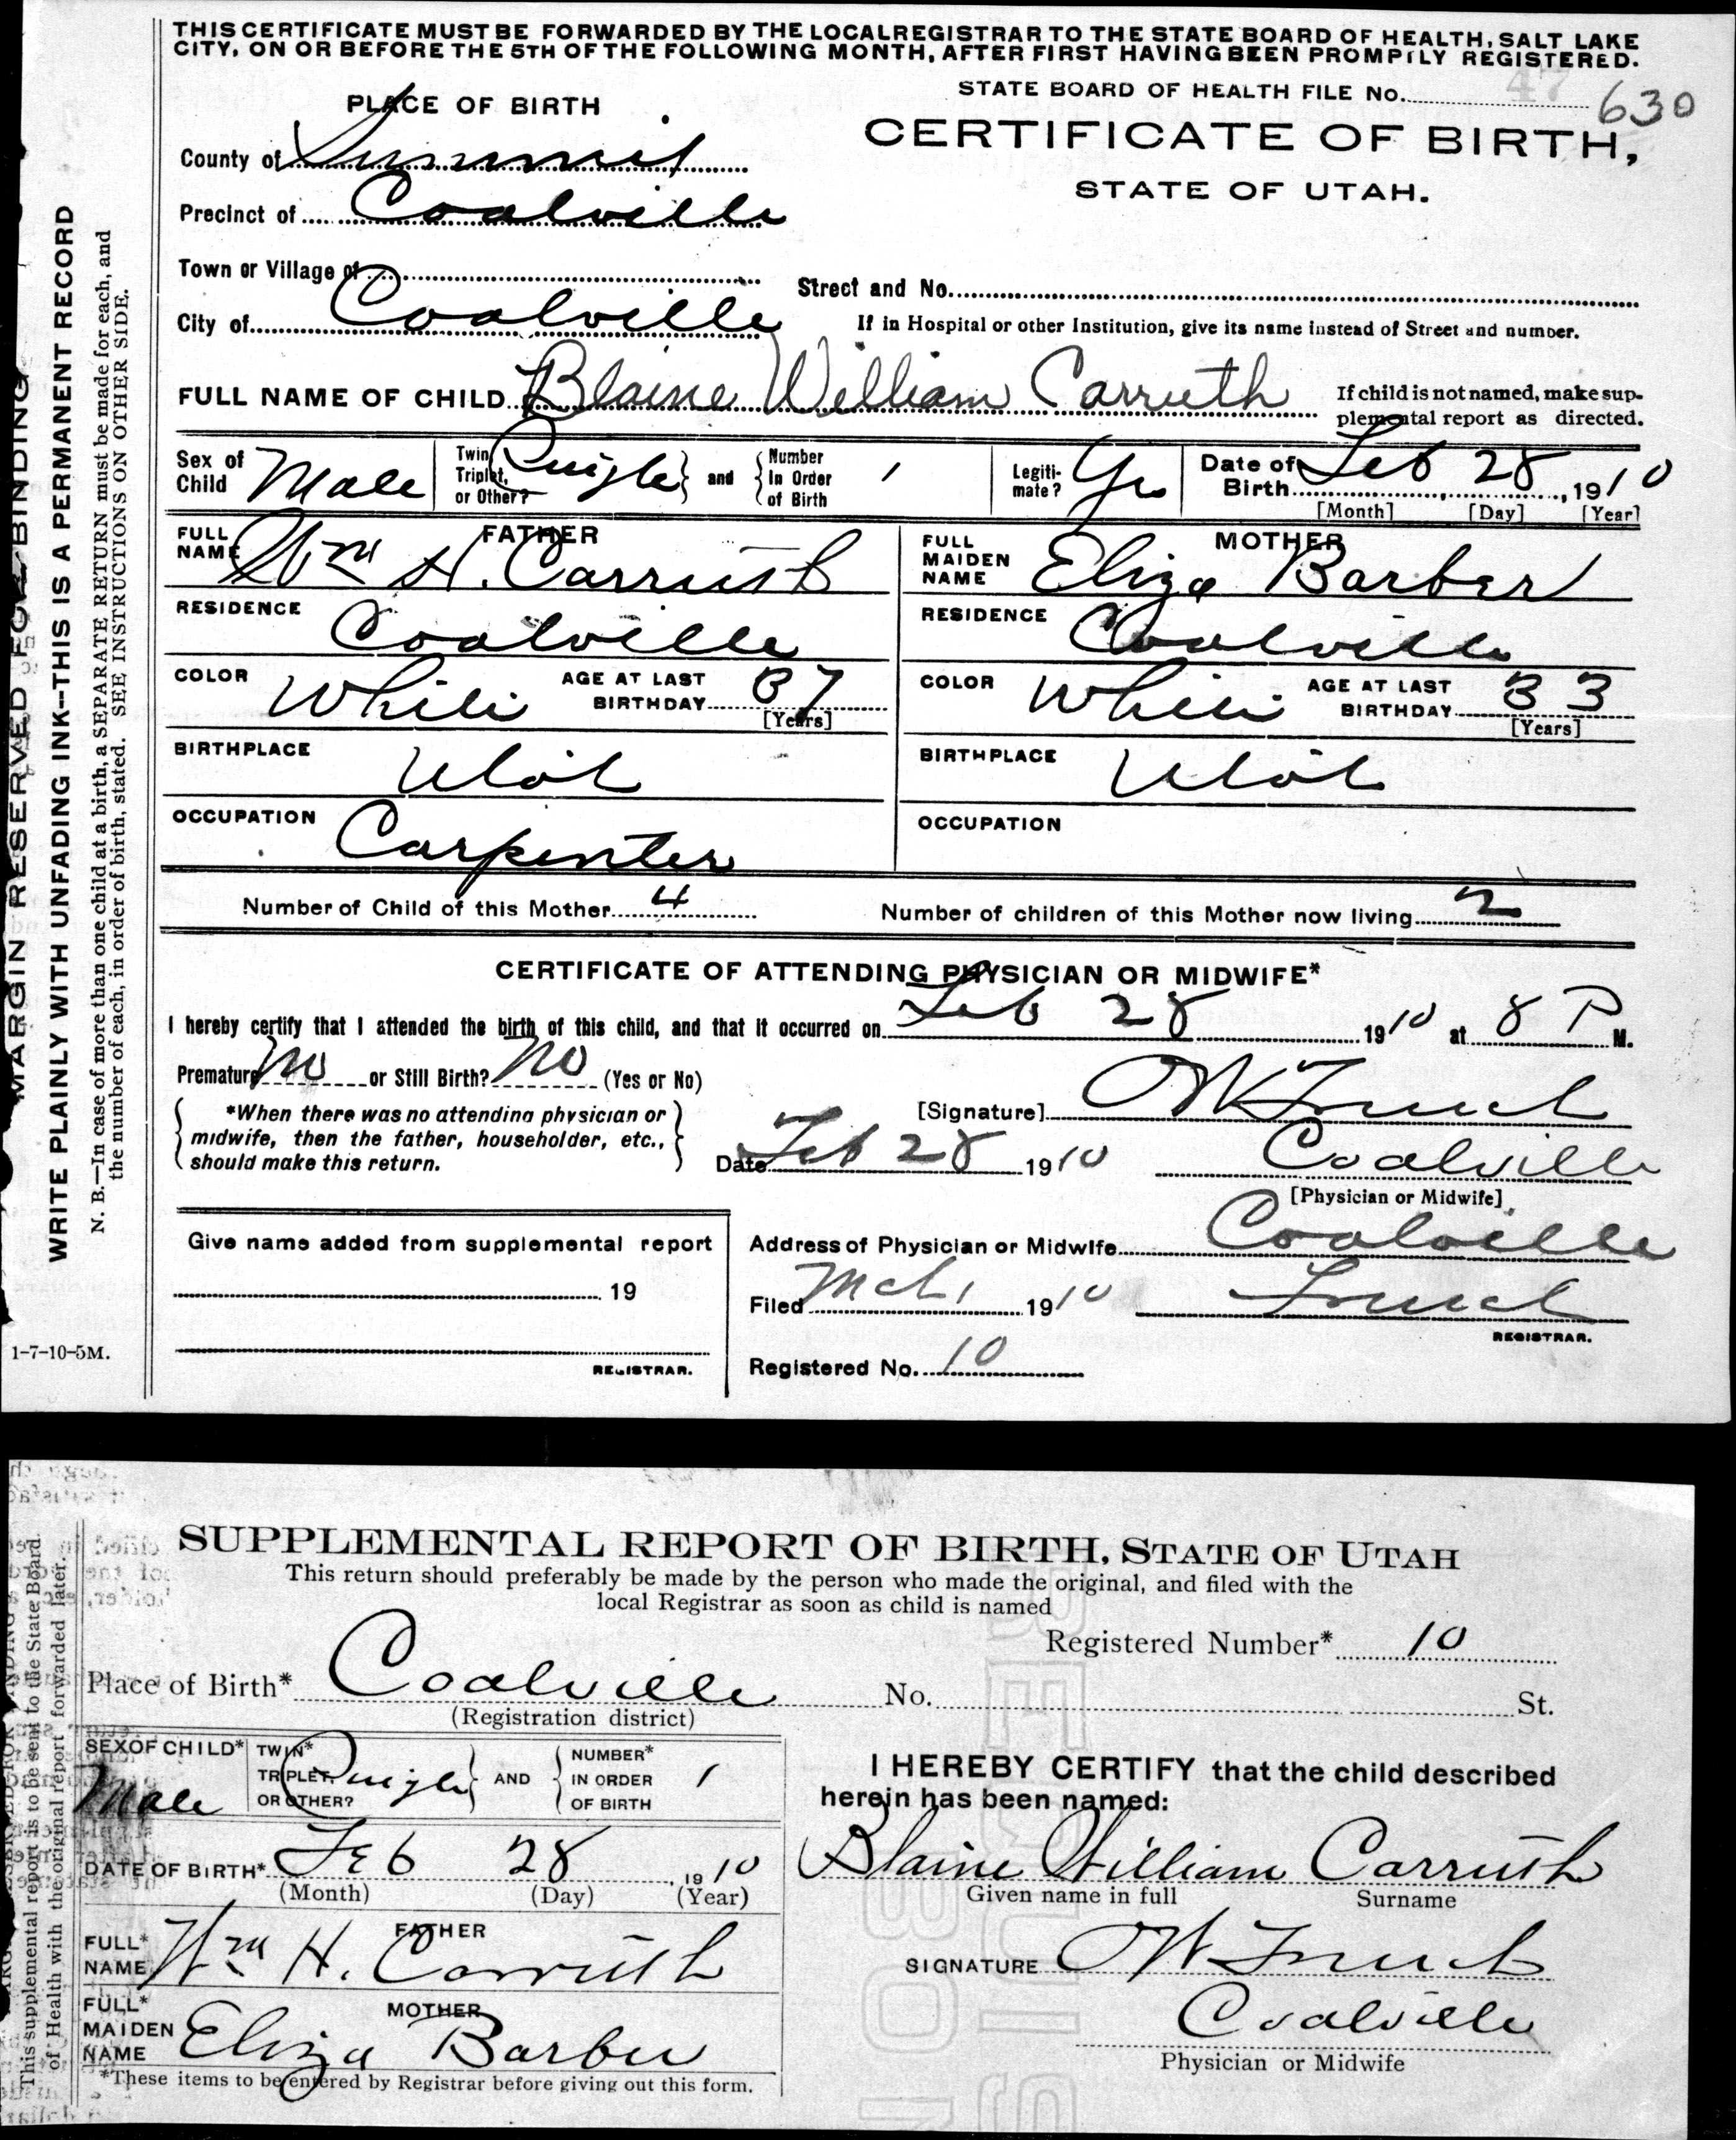 THIS CERTIFICATE MUST BE FORWARDED BY THE LOCAL REGISTRAR TO THE STATE BOARD OF HEALTH, SALT LAKE
CITY, ON OR BEFORE THE 5TH OF THE FOLLOWING MONTH, AFTER FIRST HAVING BEEN PROMPTLY REGISTERED.
PLACE OF BIRTH
STATE BOARD OF HEALTH FILE No. 47 630
CERTIFICATE OF BIRTH,
STATE OF UTAH.
County of Summit
Precinct of Coalville
Town or Village of
Street and No.
City of Coalville
If in Hospital or other Institution, give its name instead of Street and number.
FULL NAME OF CHILD Blaine William Carruth
If child is not named, make sup-
plemental report as directed.
Sex of Child Male
Twin, Triplet, or Other? Single and Number In Order of Birth 1
Legiti-mate? Yes
Date of Birth Feb 28, 1910
[Month] [Day] [Year]
FATHER
FULL NAME Wm H. Carruth
RESIDENCE Coalville
COLOR White AGE AT LAST BIRTHDAY 37
[Years]
BIRTHPLACE Utah
OCCUPATION Carpenter
MOTHER
FULL MAIDEN NAME Eliza Barber
RESIDENCE Coalville
COLOR White AGE AT LAST BIRTHDAY 33
[Years]
BIRTHPLACE Utah
OCCUPATION
Number of Child of this Mother 4
Number of children of this Mother now living 2
CERTIFICATE OF ATTENDING PHYSICIAN OR MIDWIFE*
I hereby certify that I attended the birth of this child, and that it occurred on Feb 28 1910 at 8 P M.
Premature No or Still Birth? No (Yes or No)
*When there was no attending physician or
midwife, then the father, householder, etc.,
should make this return.
[Signature]
Date Feb 28 1910 Coalville
[Physician or Midwife]
Give name added from supplemental report
19
REGISTRAR.
Address of Physician or Midwife Coalville
Filed Mch 1 1910
REGISTRAR.
Registered No. 10
MARGIN RESERVED FOR BINDING
WRITE PLAINLY WITH UNFADING INK--THIS IS A PERMANENT RECORD
N. B.—In case of more than one child at a birth, a SEPARATE RETURN must be made for each, and
the number of each, in order of birth, stated. SEE INSTRUCTIONS ON OTHER SIDE.
1-7-10-5M.
SUPPLEMENTAL REPORT OF BIRTH, STATE OF UTAH
This return should preferably be made by the person who made the original, and filed with the
local Registrar as soon as child is named
Registered Number* 10
Place of Birth* Coalville No. St.
(Registration district)
SEX OF CHILD* Male
TWIN* TRIPLET, OR OTHER? Single AND NUMBER* IN ORDER OF BIRTH 1
DATE OF BIRTH* Feb 28, 1910
(Month) (Day) (Year)
FATHER
FULL* NAME Wm H. Carruth
MOTHER
FULL* MAIDEN NAME Eliza Barber
*These items to be entered by Registrar before giving out this form.
I HEREBY CERTIFY that the child described
herein has been named:
Blaine William Carruth
Given name in full Surname
SIGNATURE
Coalville
Physician or Midwife
This supplemental report is to be sent to the State Board
of Health with the original report forwarded later.